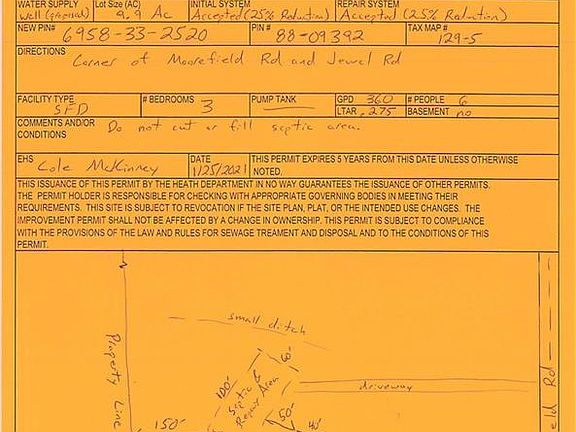 WATER SUPPLY Lot Size (AC) INITIAL SYSTEM REPAIR SYSTEM
well (proposed) 9.9 Ac Accepted (25% Reduction) Accepted (25% Reduction)
NEW PIN# 6958-33-2520 PIN # 88-09392 TAX MAP # 129-5
DIRECTIONS
Corner of Moorefield Rd and Jewel Rd
FACILITY TYPE SFD # BEDROOMS 3 PUMP TANK GPD 360 # PEOPLE 6
LTAR .275 BASEMENT no
COMMENTS AND/OR CONDITIONS Do not cut or fill septic area.
EHS Cole McKinney DATE 1/25/2021 THIS PERMIT EXPIRES 5 YEARS FROM THIS DATE UNLESS OTHERWISE
NOTED.
THIS ISSUANCE OF THIS PERMIT BY THE HEATH DEPARTMENT IN NO WAY GUARANTEES THE ISSUANCE OF OTHER PERMITS.
THE PERMIT HOLDER IS RESPONSIBLE FOR CHECKING WITH APPROPRIATE GOVERNING BODIES IN MEETING THEIR
REQUIREMENTS. THIS SITE IS SUBJECT TO REVOCATION IF THE SITE PLAN, PLAT, OR THE INTENDED USE CHANGES. THE
IMPROVEMENT PERMIT SHALL NOT BE AFFECTED BY A CHANGE IN OWNERSHIP. THIS PERMIT IS SUBJECT TO COMPLIANCE
WITH THE PROVISIONS OF THE LAW AND RULES FOR SEWAGE TREAMENT AND DISPOSAL AND TO THE CONDITIONS OF THIS
PERMIT.
small ditch
Property Line
60'
100'
Septic &
Repair Area
driveway
150'
50'
40'
eld Rd